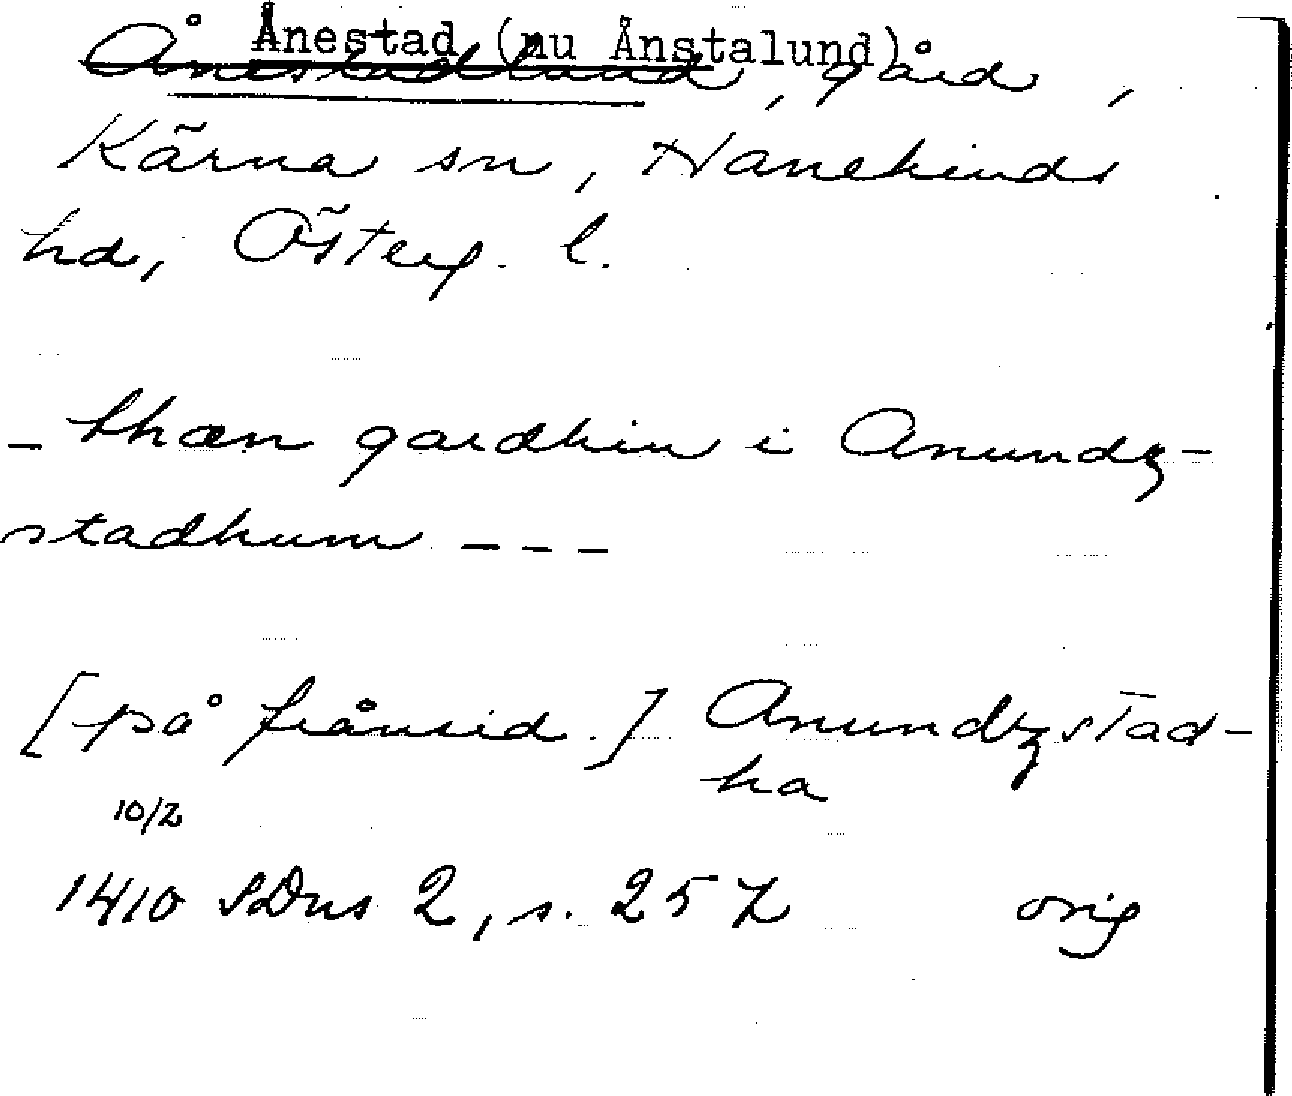 Ånestad (nu Ånstalund)
Ånestadlund, gård,
Kärna sn, Hanekinds
hd, Österg. l.
- thæn gardhin i Anundz-
stadhum ---
[på frånsid.] Anundzstad-
ha
10/2
1410 SDns 2, s. 257 orig